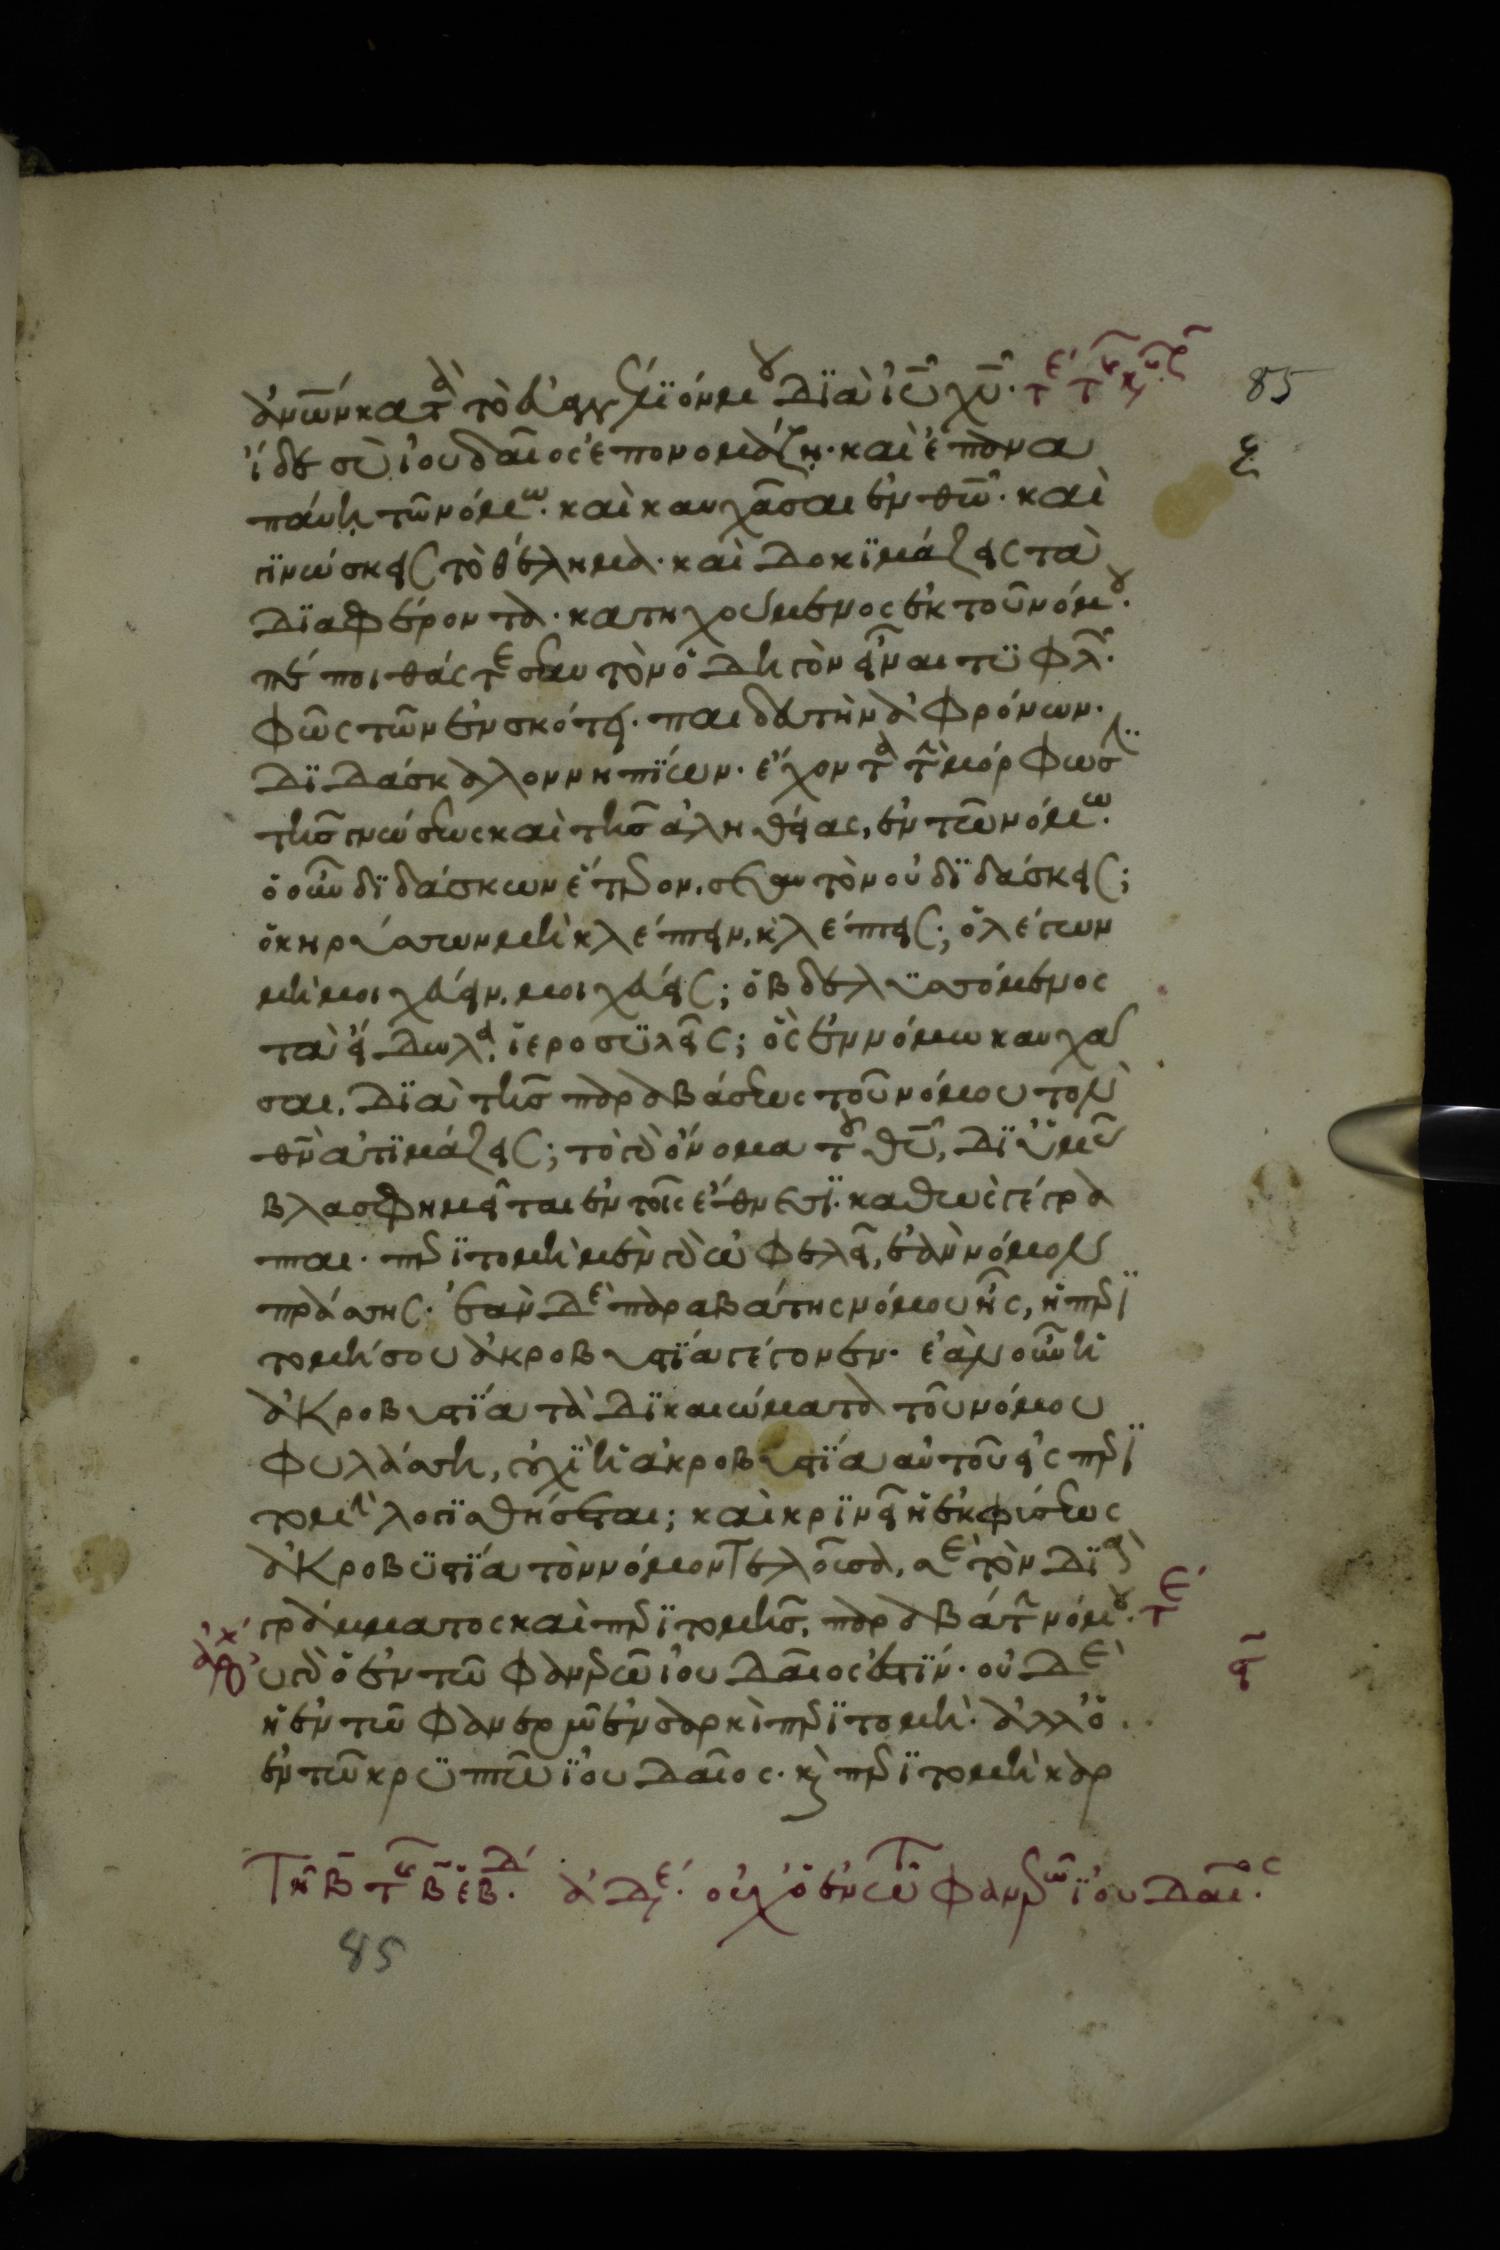 ἀνων κατὰ τὸ εὐαγγέλϊόν μου Δϊὰ ἰυ χυ·
85
ἴδε σὺ ἰουδαῖος ἐπονομάζη· καὶ ἐπανα
ξ
παύη τῶ νόμω· καὶ καυχᾶσαι ἐν θω· καὶ
γϊνώσκεις τὸ θέλημα· καὶ Δοκϊμάζεις τὰ
Δϊαφέροντα· κατηχούμενος ἐκ τοῦ νόμου·
πέποιθάς τε σεαυτὸν ὁΔηγὸν εἶναι τϋφλῶν·
φῶς τῶν ἐν σκότει· παιδευτὴν ἀφρόνων·
ΔϊΔάσκαλον νηπϊων· ἔχοντα τὴν μόρφωσϊν
τῆς γνώσεως καὶ τῆς ἀληθείας, ἐν τῶ νόμω·
ὁ οὖν δϊδάσκων ἕτερον, σεαυτὸν οὐ δϊδάσκεις;
ὁ κηρύσσων μὴ κλέπτειν, κλέπτεις; ὁ λέγων
μὴ μοιχεύειν, μοιχεύεις; ὁ βδελϋσσόμενος
τὰ εἴΔωλα, ἱεροσϋλεῖς; ὃς ἐν νόμω καυχᾶ
σαι, Δϊὰ τῆς παραβάσεως τοῦ νόμου τὸν
θν ἀτϊμάζεις; τὸ γὰρ ὄνομα τοῦ θυ, Δϊ ὑμᾶς
βλασφημεῖται ἐν τοῖς ἔθνεσϊ· καθὼς γέγρα
πται· περϊτομὴ μὲν γὰρ ὠφελεῖ, ἐὰν νόμον
πράσσης· ἐὰν Δὲ παραβάτης νόμου ἦς, ἡ περϊ
τομή σου ἀκροβυστϊα γέγονεν· ἐὰν οὖν ἡ
ἀκροβυστϊα τὰ Δϊκαιώματα τοῦ νόμου
φυλάσση, οὐχϊ ἡ ἀκροβυστϊα αὐτοῦ εἰς περϊ
τομὴν λογϊσθήσεται; καὶ κρϊνεῖ ἡ ἐκ φύσεως
ἀκροβϋστϊα τὸν νόμον τελοῦσα, σὲ τὸν Δϊὰ
γράμματος καὶ περϊτομῆς, παραβάτην νόμου·
οὐ γὰρ ὁ ἐν τῶ φανερῶ ἰουΔαῖος ἐστϊν· οὐΔὲ
ἡ ἐν τῶ φανερῶ ἐν σαρκὶ περϊτομή· ἀλλ' ὁ
ἐν τῶ κρϋπτῶ ϊουΔαῖος· κ περϊτομὴ καρ
Τῆ β τῆς β ἑβ. Δ ἀΔε. οὐχ ὁ ἐν τῶ φανερῶ ϊουΔαῖος
85